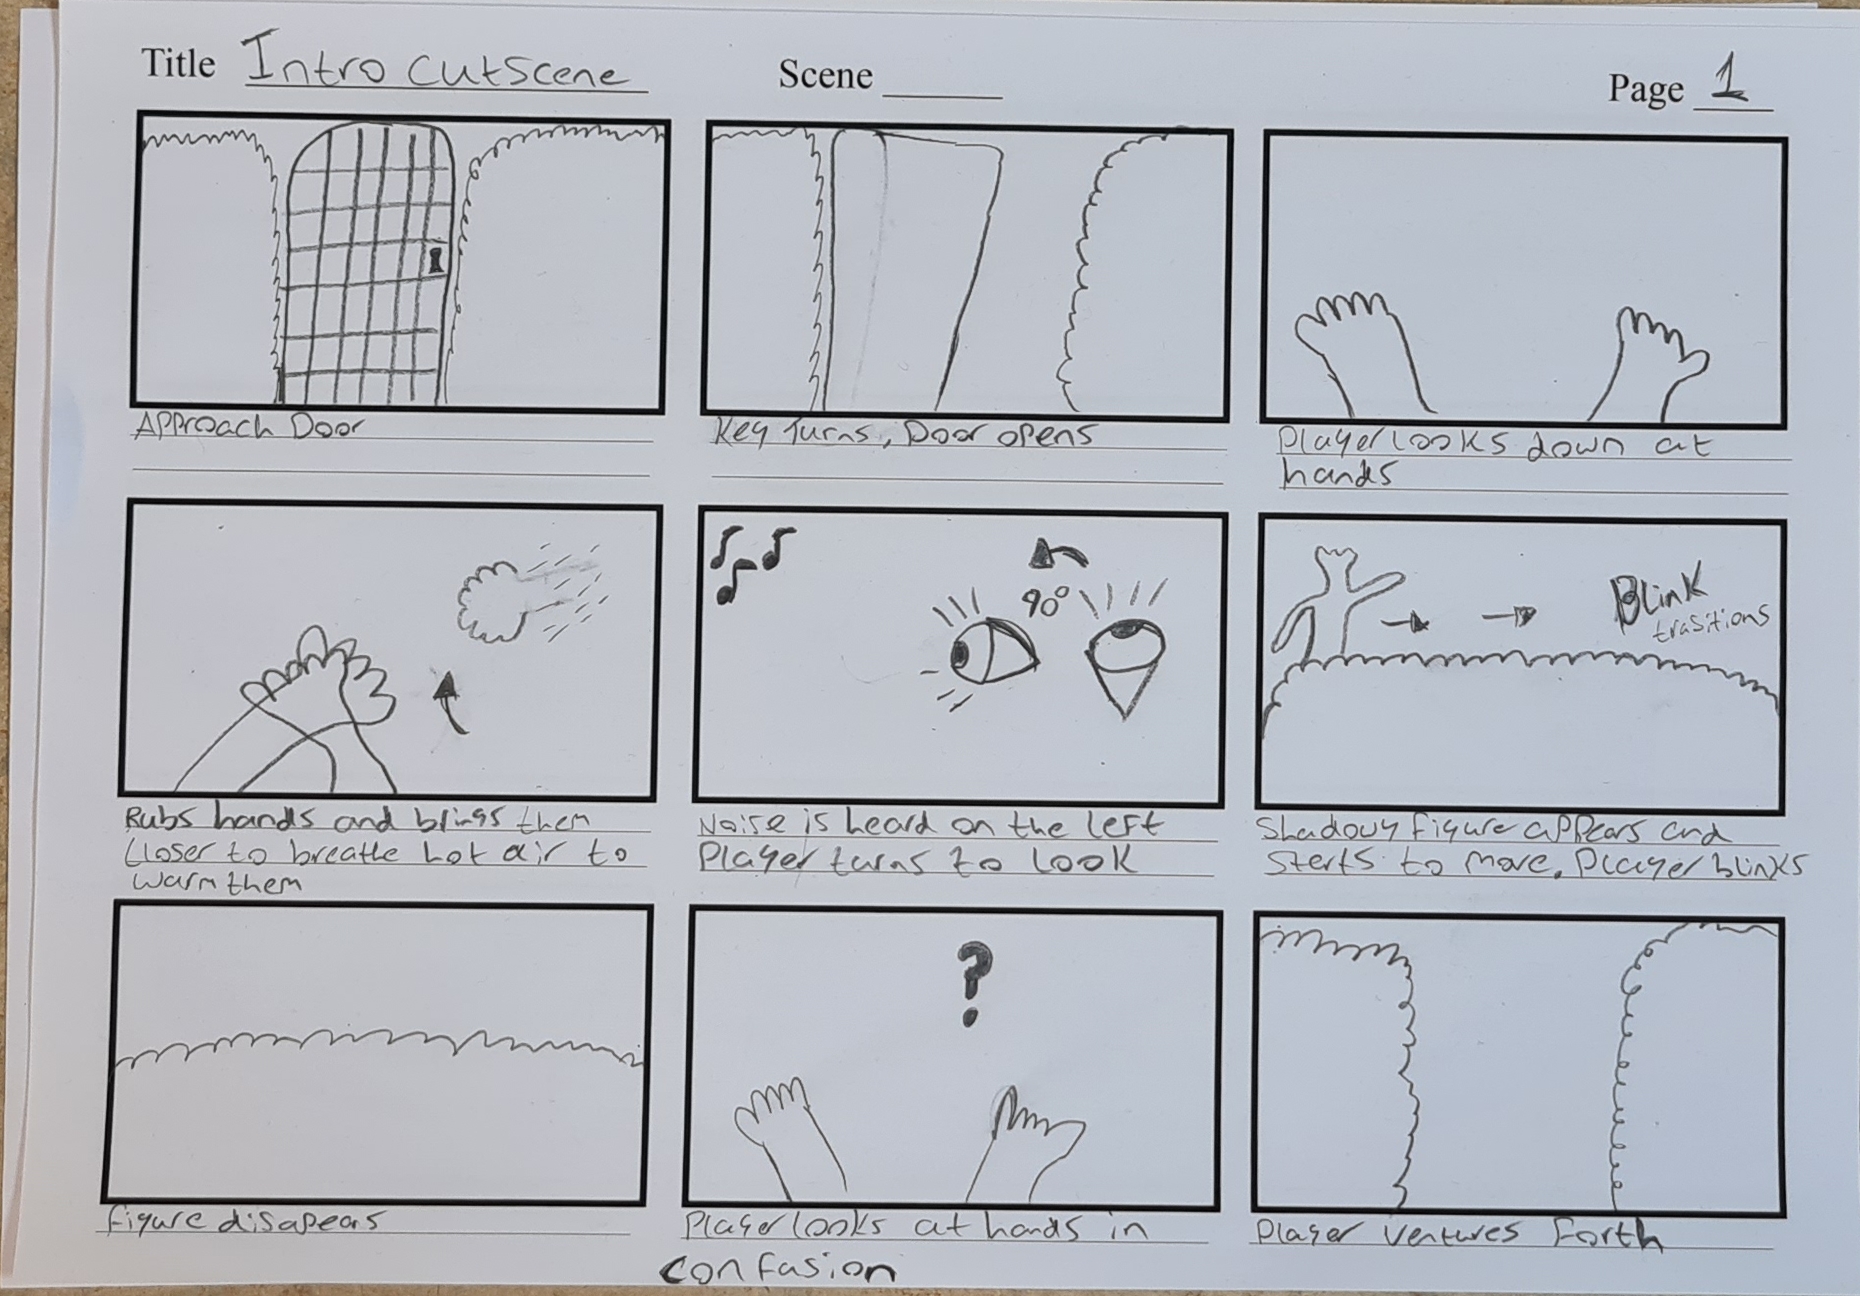 Title Intro cutscene
Scene
Page 1
Approach Door
Key Turns, Door opens
Player looks down at
hands
Rubs hands and brings them
closer to breathe hot air to
warm them
90°
Noise is heard on the left
Player turns to look
Blink
trasitions
Shadowy figure appears and
sterts to move. Player blinks
figure disapears
?
Player looks at hands in
confusion
Player ventures forth